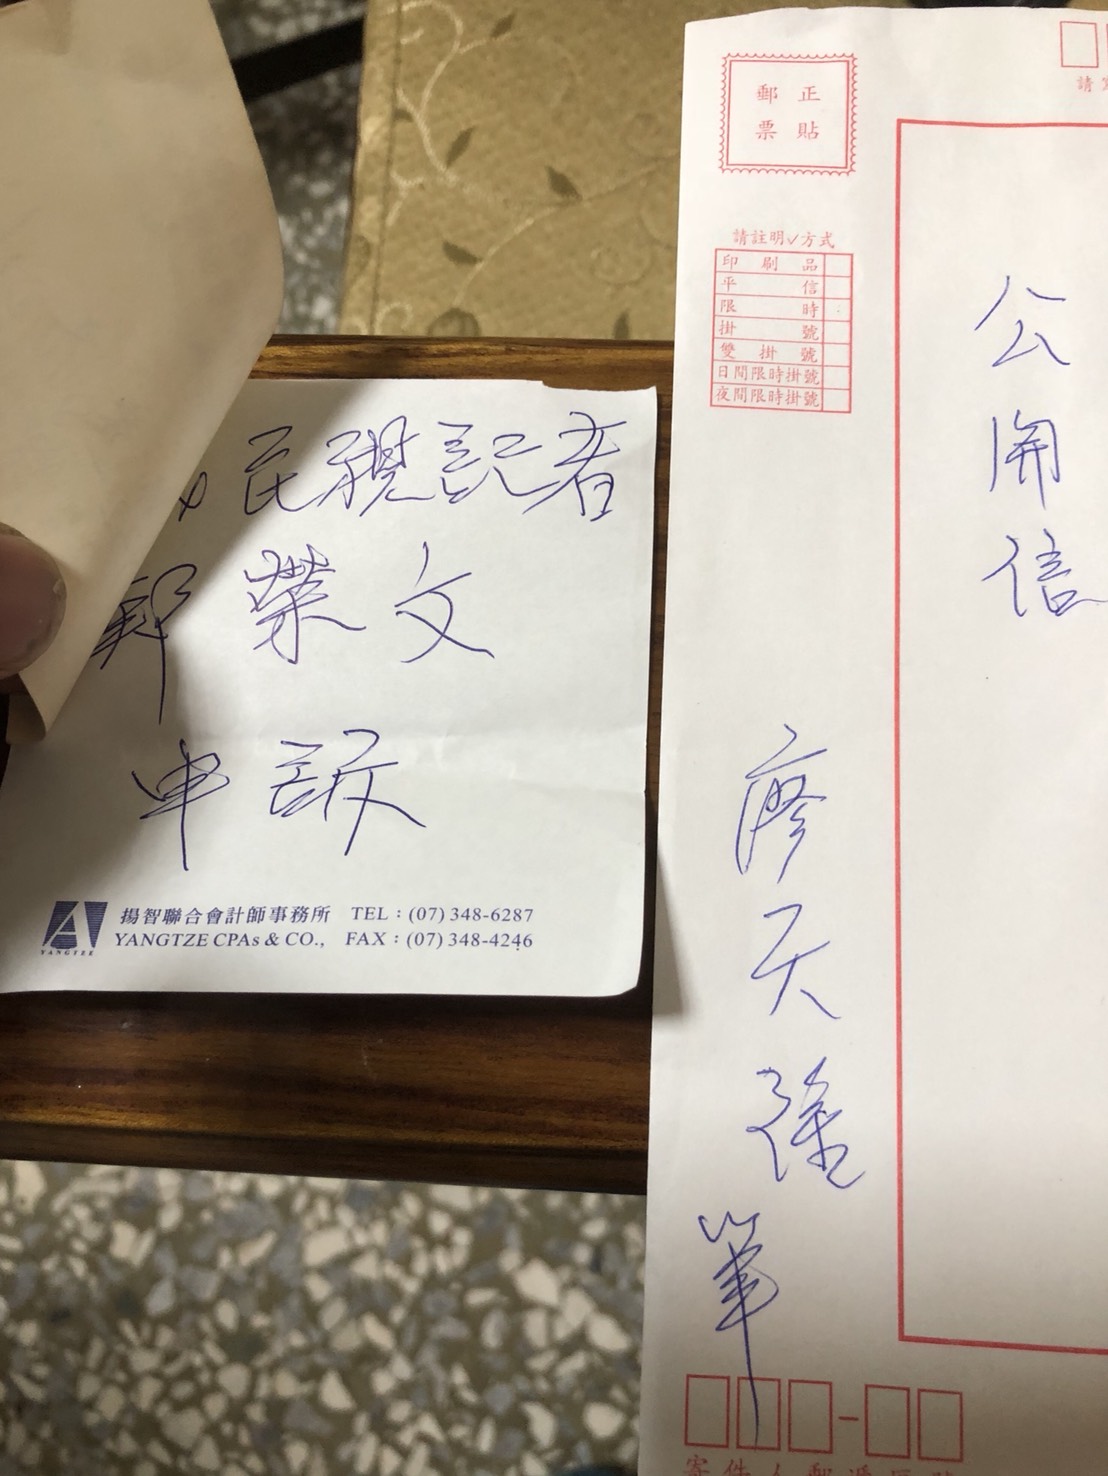 民視記者
郭榮文
申訴
揚智聯合會計師事務所 TEL：(07) 348-6287
YANGTZE CPAs & CO., FAX：(07) 348-4246
YANGTZE
正貼
郵票
請註明✓方式
印刷品
平信
限時
掛號
雙掛號
日間限時掛號
夜間限時掛號
公開信
廖天隆
筆